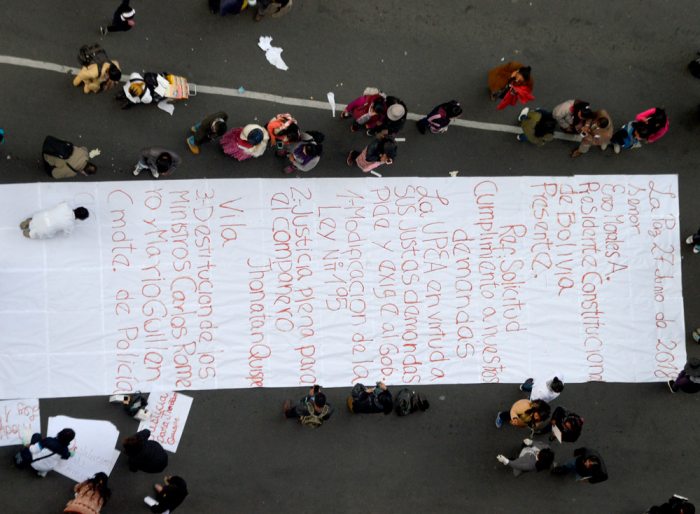 La Paz 27 Junio de 2018
Señor
Evo Morales A.
Presidente Constitucional
de Bolivia
Presente.
Ref: Solicitud
Cumplimiento a nuestras
demandas
La UPEA en virtud a
sus justas demandas
Pide y exige al Gob.
1-Modificación de la
Ley N° 195
2-Justicia plena para
al Compañero
Jhonatan Quispe
Vila
3-Destitución de los
Ministros Carlos Rome
ro y Mario Guillen
Cmdte. de Policia
Justicia
para